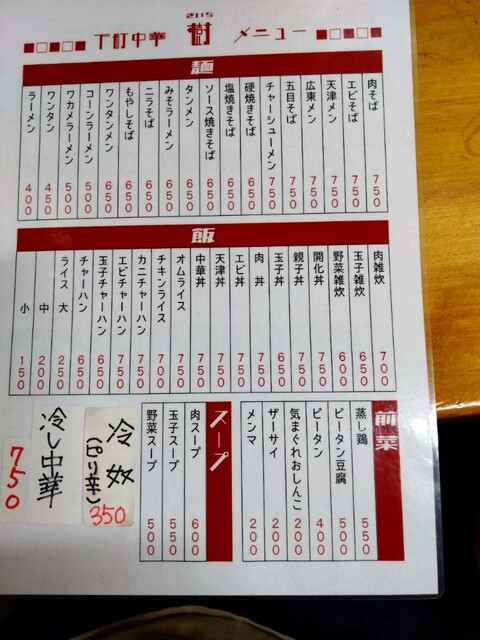 2115
下町中華 樹 メニュー
麺
肉そば 750
エビそば 750
天津メン 750
広東メン 750
五目そば 750
チャーシューメン 750
硬焼きそば 650
塩焼きそば 650
ソース焼きそば 650
タンメン 650
みそラーメン 650
ニラそば 650
もやしそば 650
ワンタンメン 650
コーンラーメン 500
ワカメラーメン 500
ワンタン 450
ラーメン 400
飯
肉雑炊 700
玉子雑炊 650
野菜雑炊 600
開化丼 750
親子丼 750
玉子丼 650
肉丼 750
エビ丼 750
天津丼 750
中華丼 750
オムライス 750
チキンライス 700
カニチャーハン 750
エビチャーハン 750
玉子チャーハン 650
チャーハン 650
ライス 大 250
中 200
小 150
前菜
蒸し鶏 550
ピータン豆腐 500
ピータン 400
気まぐれおしんこ 200
ザーサイ 200
メンマ 200
スープ
肉スープ 600
玉子スープ 550
野菜スープ 500
冷奴
(ピリ辛) 350
冷し中華
750